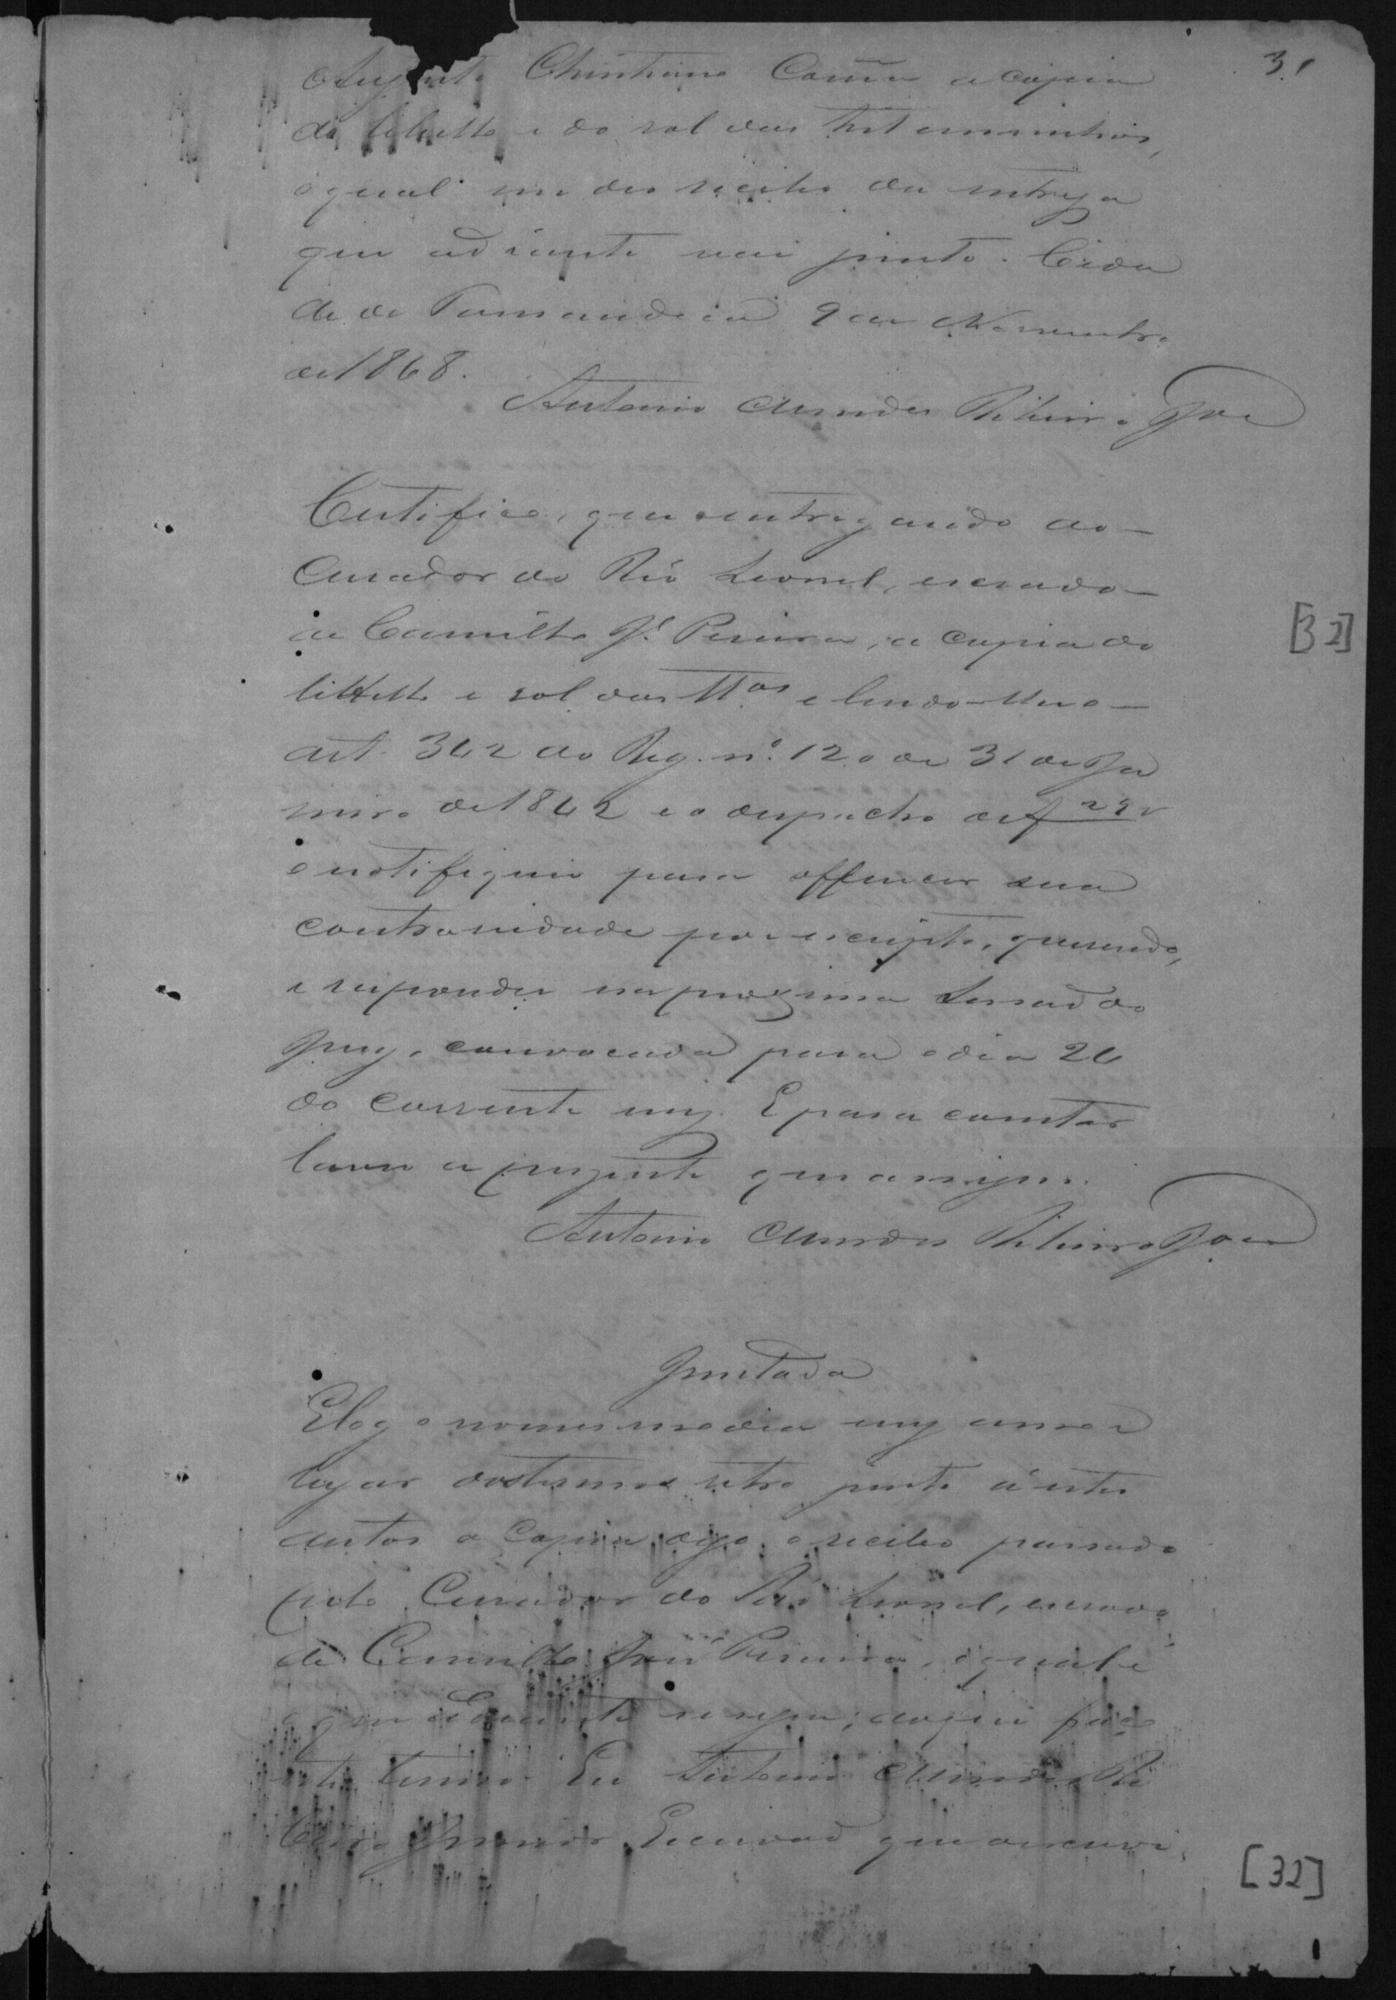 31
Augusto Christiano a copia
do libello e do rol das testemunhas,
o qual me deu recibo da entrega
que adiante vai junto. Cida
de de Tamandaré 9 de Novembro
de 1868.
Antonio Mendes Ribeiro Jor
Certifico, que entregando ao
Curador do Réo Leonel, escravo
de Camillo Jé Pereira, a copia do
libello e rol das ttas e lendo-lhe o
art. 342 do Reg. nº. 120 de 31 de Ja
neiro de 1842 e o despacho de f 29v
o notifiquei para offerecer sua
contrariedade por escripto, querendo,
e responder na proxima Sessão do
Jury, convocada para o dia 26
do corrente mez. E para constar
lavro a presente que assigno.
Antonio Mendes Ribeiro Jor
[32]
Juntada
E logo no mesmo dia mez anno e
lugar do termo retro junto á estes
autos a copia digo, o recibo passado
pelo Curador do Réo Leonel, escravo
de Camillo José Pereira, o qual é
o que adiante se segue; do que faço
este termo. Eu Antonio Mendes Ri
beiro Junior Escrivão que o escrevi.
[32]